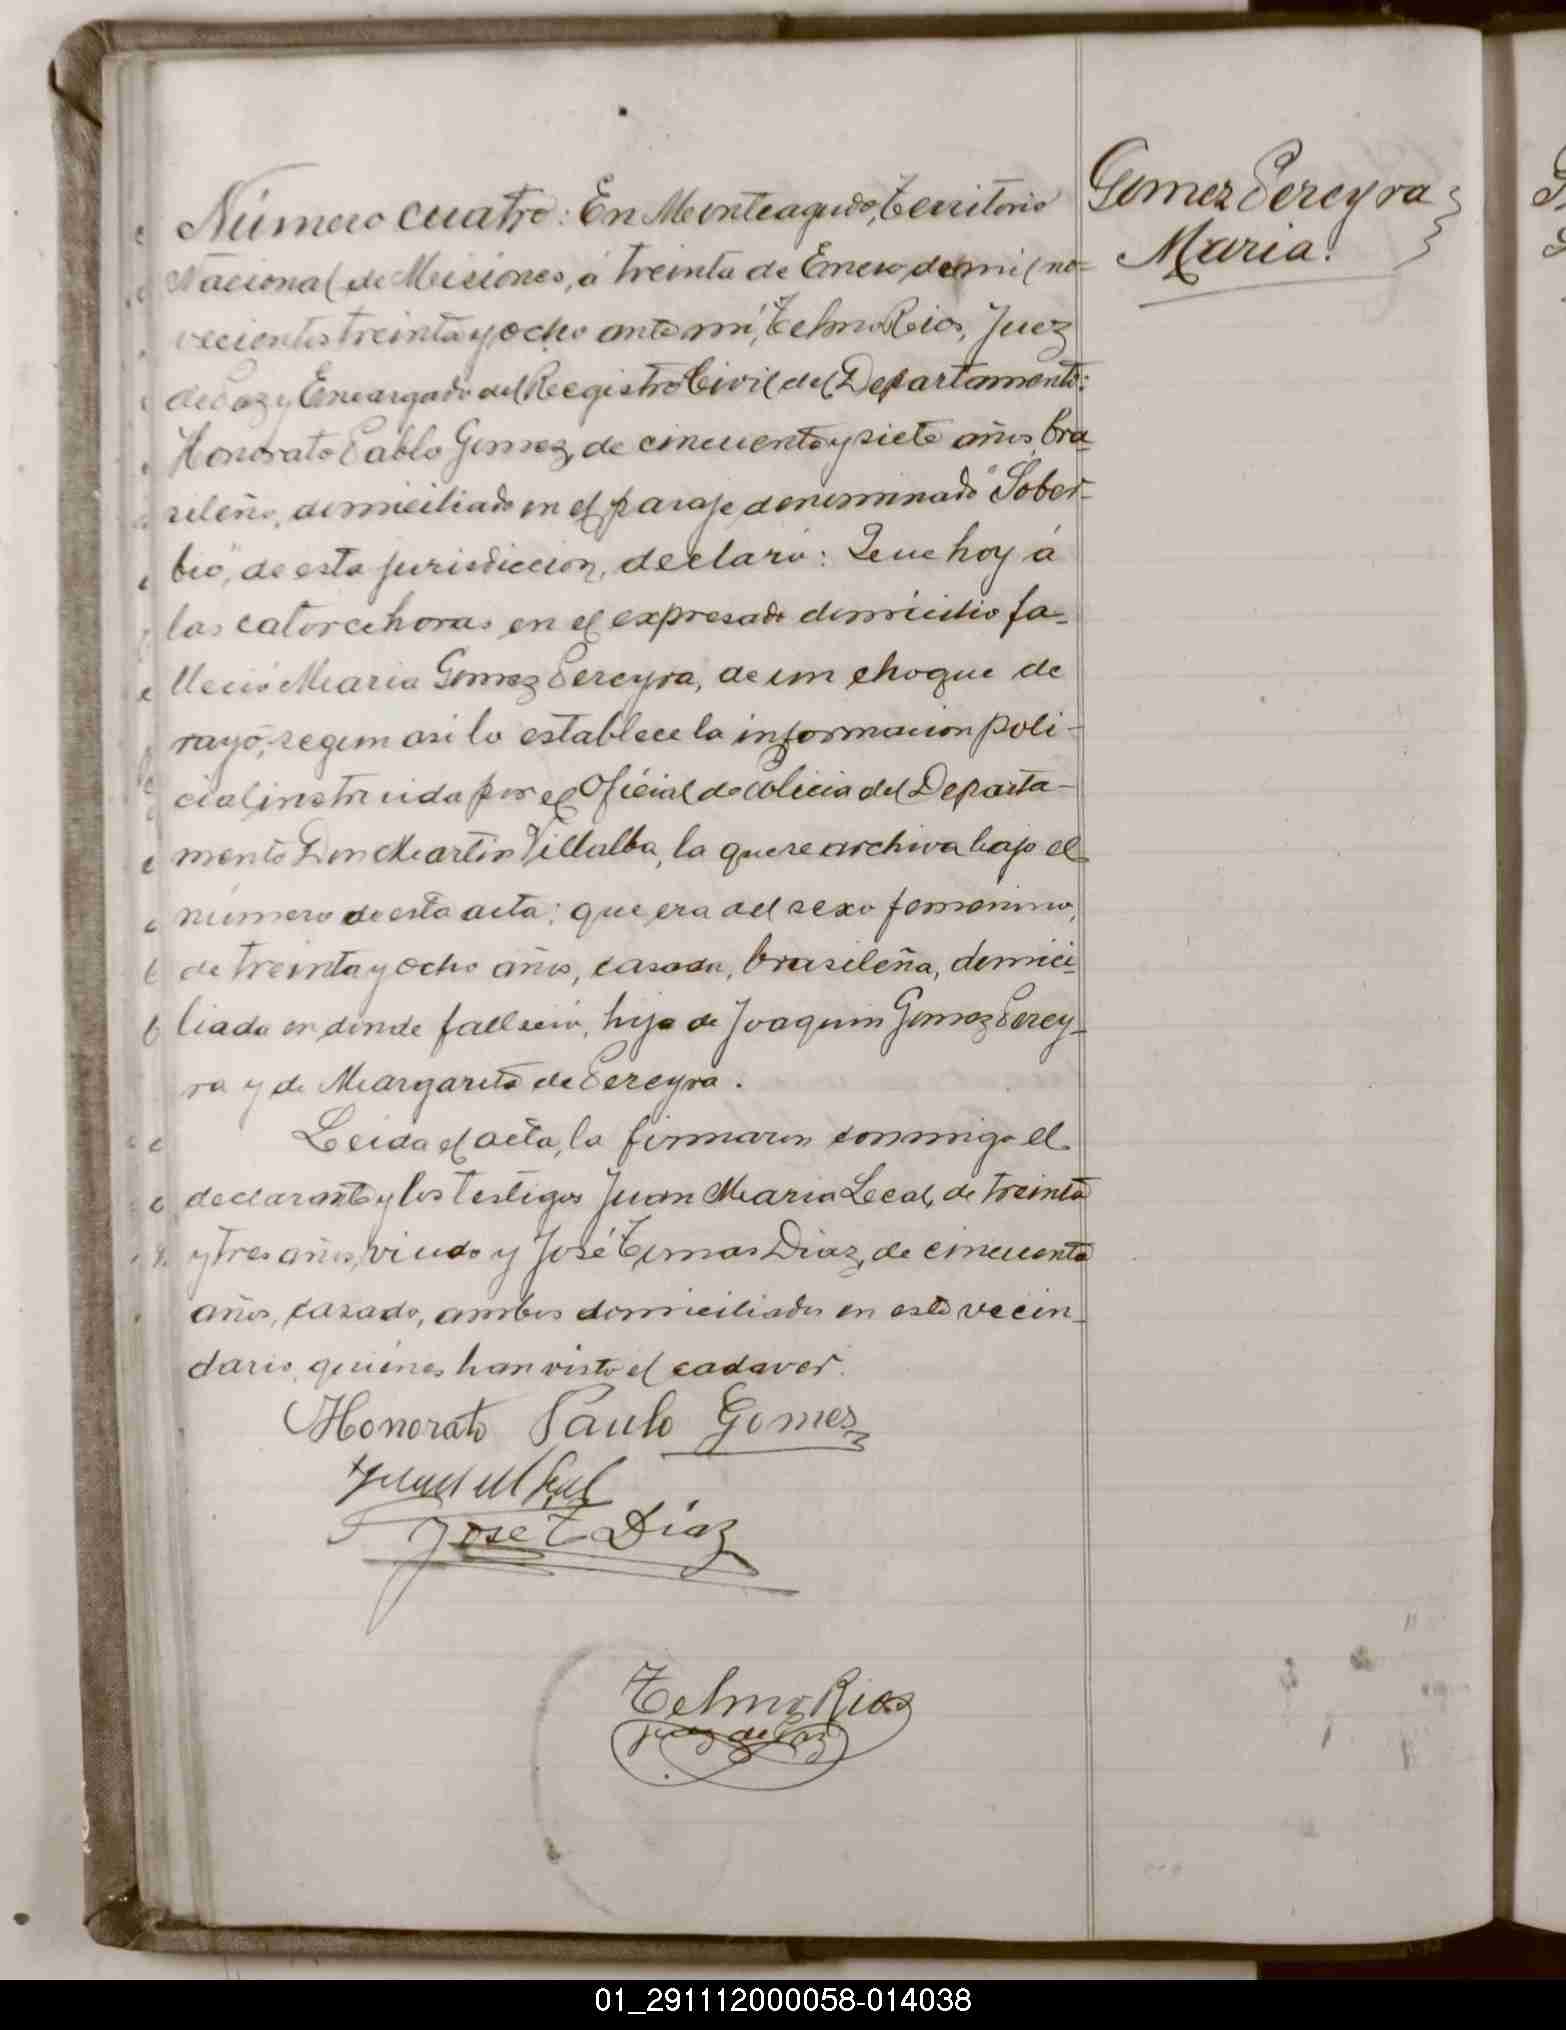 Número cuatro: En Monteagudo, Territorio
Nacional de Misiones, á treinta de Enero de mil no=
vecientos treinta y ocho ante mí, Telmo Rios, Juez
de Paz y Encargado del Registro Civil del Departamento:
Honorato Pablo Gomez, de cincuenta y siete años, bra=
sileño, domiciliado en el paraje denominado "Sober=
bio", de esta jurisdiccion, declaró: Que hoy á
las catorce horas en el expresado domicilio fa=
lleció Maria Gomez Pereyra, de un choque de
rayo, segun asi lo establece la informacion poli-
cial instruida por el Oficial de Policia del Departa-
mento Don Martin Villalba, la que se archiva bajo el
número de esta acta: que era del sexo femenino,
de treinta y ocho años, casada, brasileña, domici=
liada en donde falleció, hija de Joaquin Gomez Perey=
ra y de Margarita de Pereyra.
Leida el acta, la firmaron conmigo el
declarante y los testigos Juan Maria Leal, de treinta
y tres años, viudo y José Tomas Diaz, de cincuenta
años, casado, ambos domiciliados en este vecin=
dario, quiénes han visto el cadaver.
Honorato Paulo Gomez
Juan M Leal
Jose T Díaz
Telmo Rios
Juez de Paz
Gomez Pereyra
Maria.
01_291112000058-014038